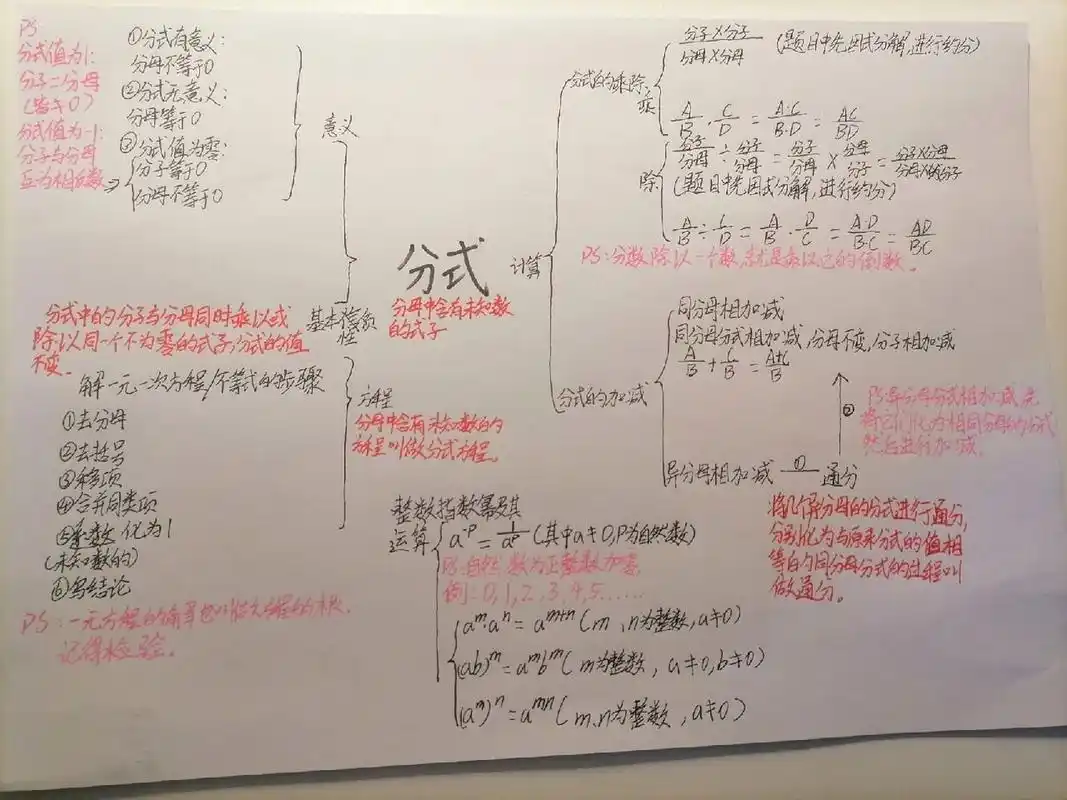 PS:
分式值为1:
分子=分母
(皆≠0)
分式值为-1:
分子与分母
互为相反数
①分式有意义:
分母不等于0
②分式无意义:
分母等于0
③分式值为零:
分子等于0
分母不等于0
意义
分式中的分子与分母同时乘以或
除以同一个不为零的式子,分式的值
不变.
基本
性
分式
分母中含有未知数
的式子
解一元一次方程/不等式的步骤
①去分母
②去括号
③移项
④合并同类项
⑤系数化为1
(未知数的)
⑥写结论
PS:一元方程的解也叫做方程的根.
记得检验.
方程
分母中含有未知数的
方程叫做分式方程.
计算
分式的乘除
乘
分子×分子/分母×分母 (题目中先因式分解,进行约分)
A/B·C/D=A·C/B·D=AC/BD
除
分子/分母÷分子/分母=分子/分母×分母/分子=分子×分母/分母×分子
(题目中先因式分解,进行约分)
A/B÷C/D=A/B·D/C=A·D/B·C=AD/BC
PS:分数除以一个数,就是乘以这的倒数.
分式的加减
同分母相加减
同分母分式相加减,分母不变,分子相加减
A/B+C/B=A+C/B
②
PS:异分母分式相加减,先
将它们化为相同分母的分式
然后进行加减.
异分母相加减 ① 通分
将几个异分母的分式进行通分,
分别化为与原来分式的值相
等的同分母分式的过程叫
做通分.
整数指数幂及其
运算
a⁻ᴾ=1/aᴾ(其中a≠0,P为自然数)
PS:自然数为正整数加零.
例:0,1,2,3,4,5......
aᵐ·aⁿ=aᵐ⁺ⁿ(m、n为整数,a≠0)
(ab)ᵐ=aᵐbᵐ(m为整数,a≠0,b≠0)
(aᵐ)ⁿ=aᵐⁿ(m、n为整数,a≠0)